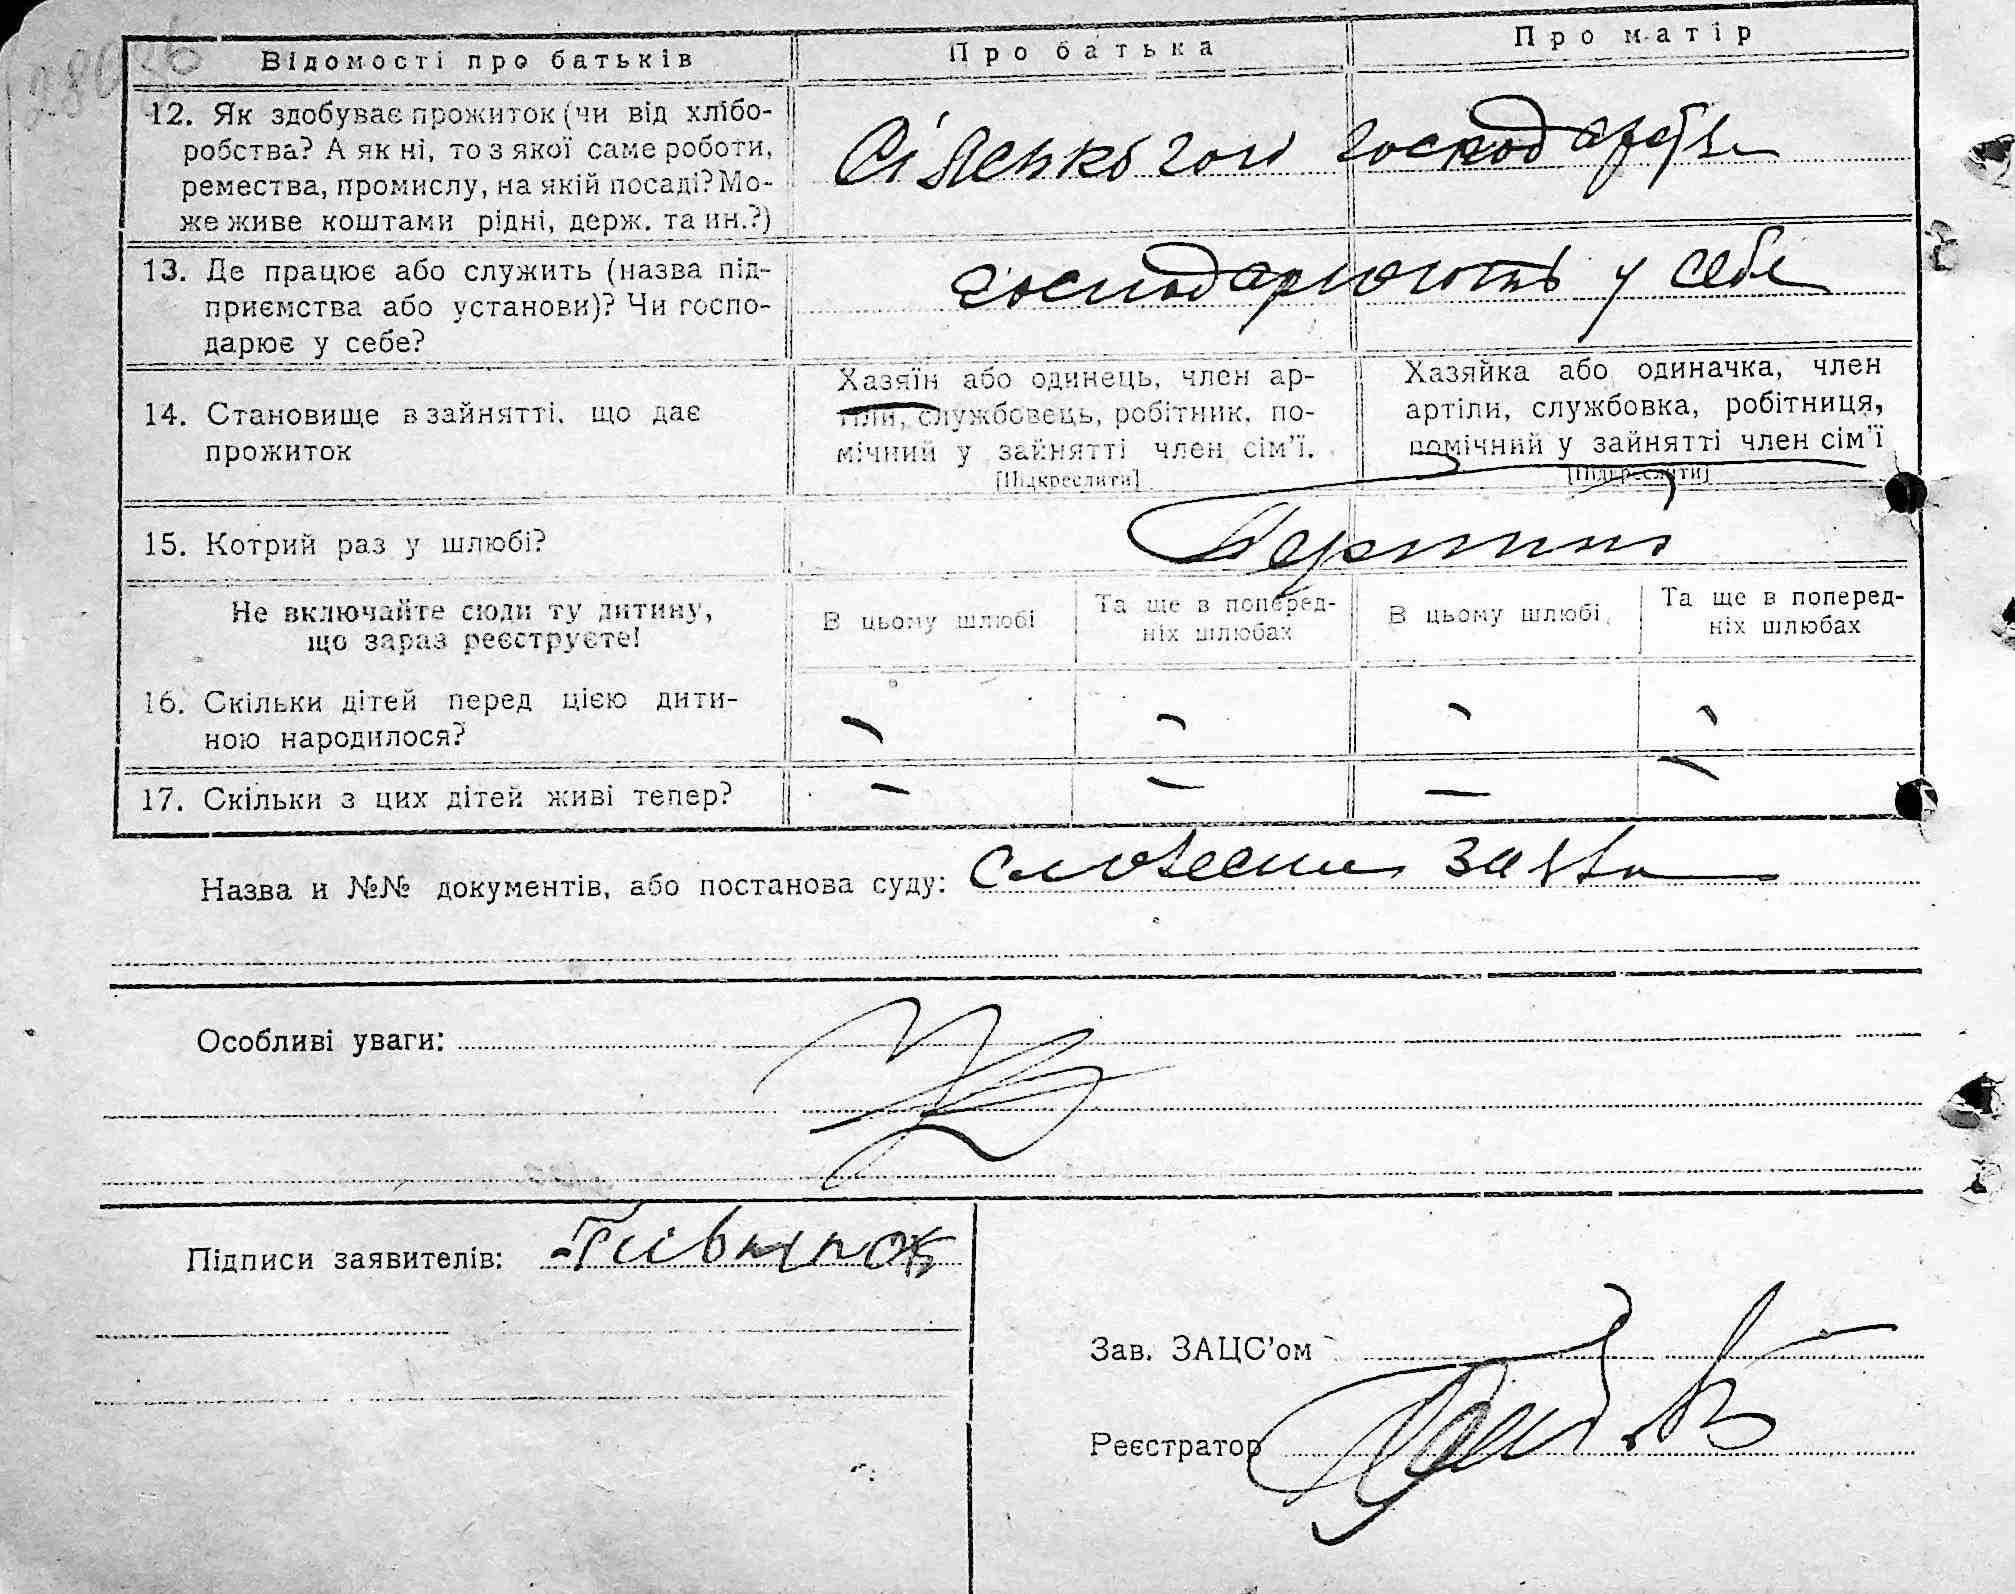 Відомості про батьків Про батька Про матір
12. Як здобуває прожиток (чи від хлібо-
робства? А як ні, то з якої саме роботи,
ремества, промислу, на якій посаді? Мо-
же живе коштами рідні, держ. та ин.?)
Сільського господарства
13. Де працює або служить (назва під-
приємства або установи)? Чи госпо-
дарює у себе?
господарюють у себе
14. Становище в зайнятті, що дає
прожиток
Хазяїн або одинець, член ар-
тіли, службовець, робітник, по-
мічний у зайнятті член сім'ї.
[Підкреслити]
Хазяйка або одиначка, член
артіли, службовка, робітниця,
помічний у зайнятті член сім'ї
[Підкреслити]
15. Котрий раз у шлюбі?
Перший
Не включайте сюди ту дитину,
що зараз реєструєте!
В цьому шлюбі
Та ще в поперед-
ніх шлюбах
В цьому шлюбі
Та ще в поперед-
ніх шлюбах
16. Скільки дітей перед цією дити-
ною народилося?
– – – –
17. Скільки з цих дітей живі тепер?
– – – –
Назва и №№ документів, або постанова суду: словесна заява
Особливі уваги:
Підписи заявителів:
Зав. ЗАЦС'ом
Реєстратор